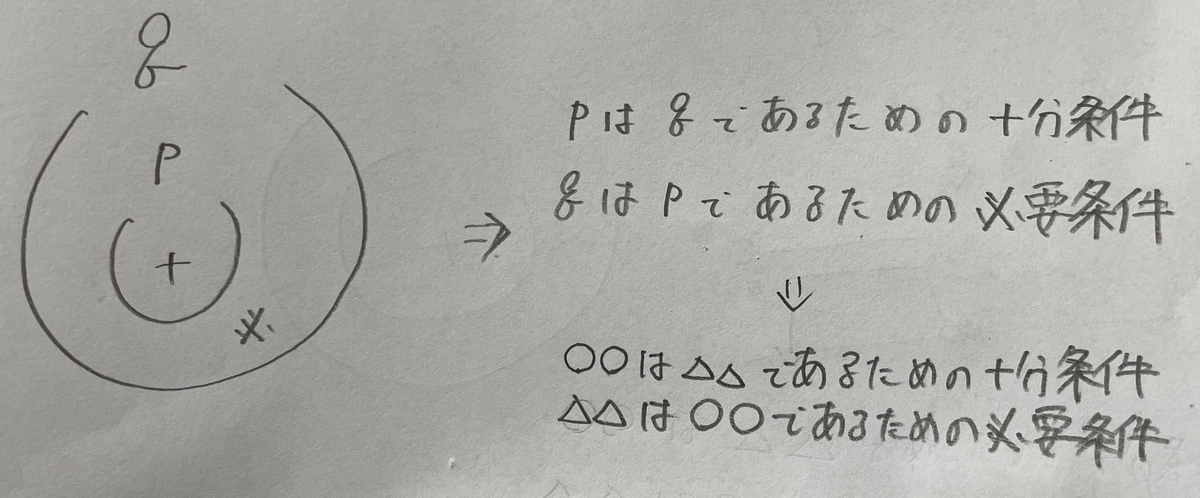 q
P
十
必
⇒
Pはqであるための十分条件
qはPであるための必要条件
⇓
○○は△△であるための十分条件
△△は○○であるための必要条件